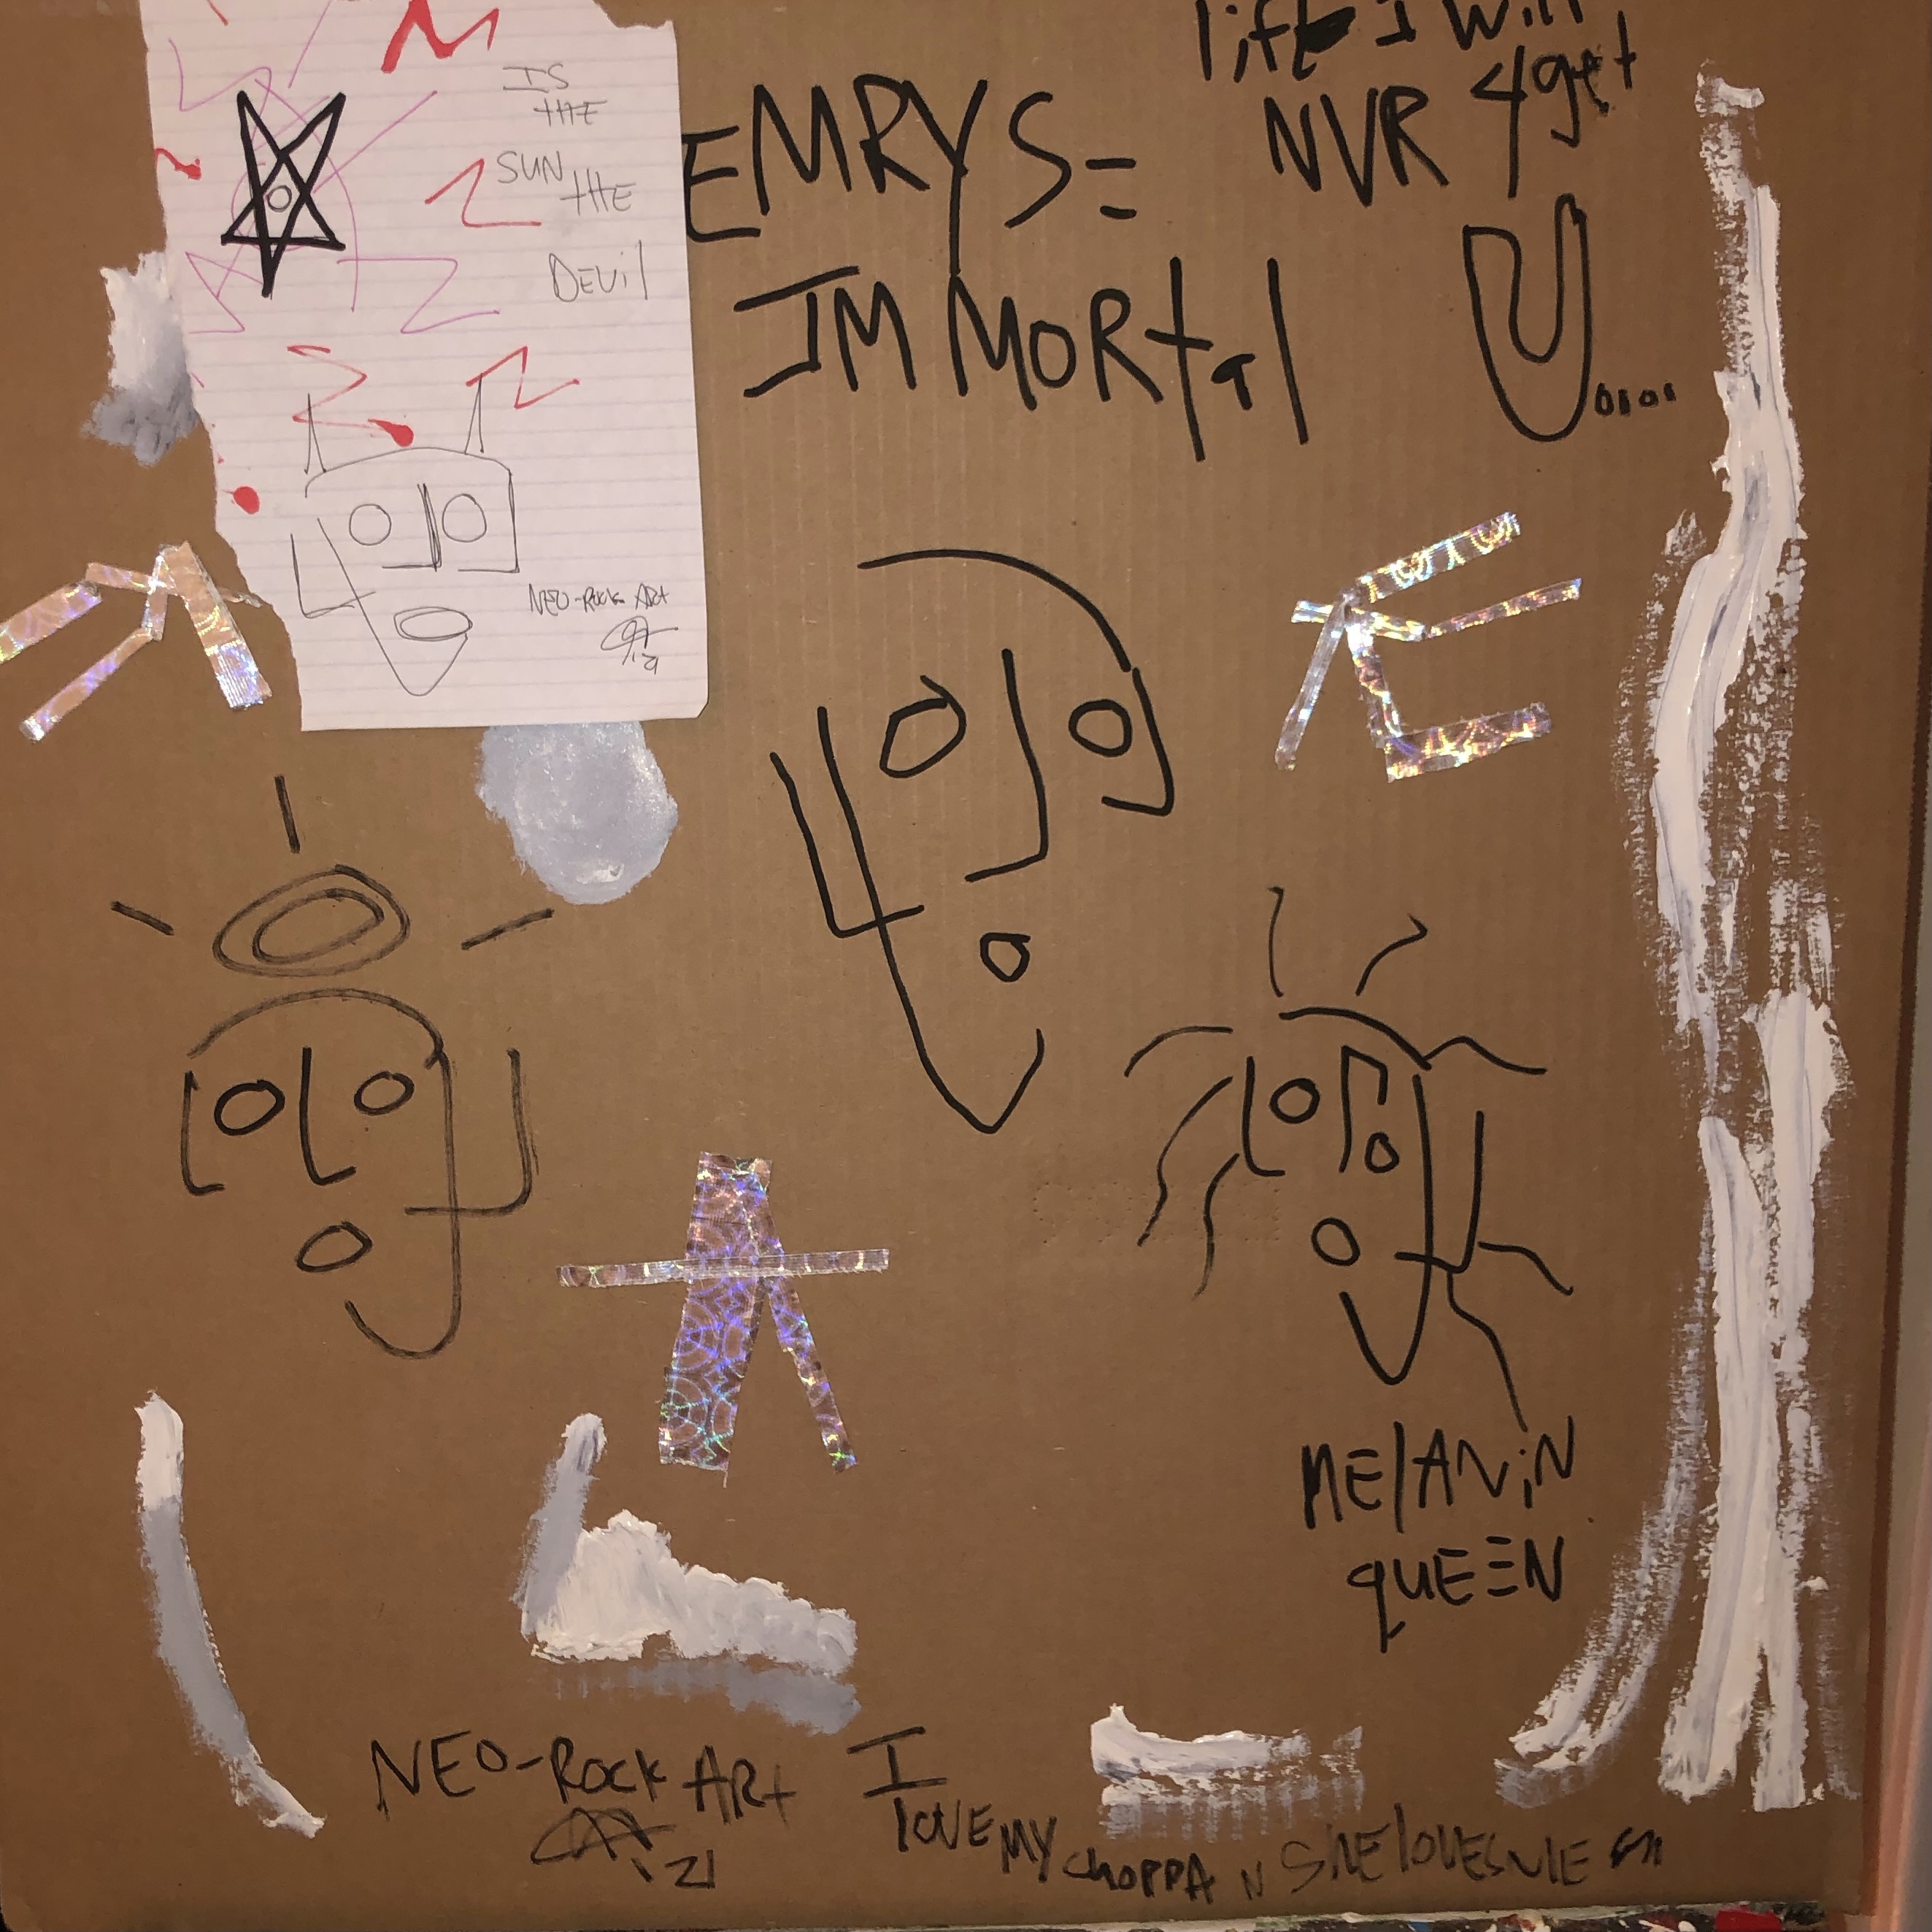 IS
tHE
SUN
tHE
DEVil
NEO-ROCK ARt
EMRYS=
IMMORtal
life I Will
NVR 4get
U....
MElANiN
QUEEN
NEO-ROCK ARt
'21
I
lOVE MY CHOPPA N SHE lOVES ME